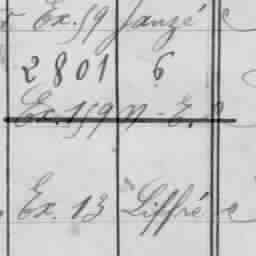 Ex. 59 Janzé
2801 6
Ex. 159 N - E.
Ex. 13 Liffré